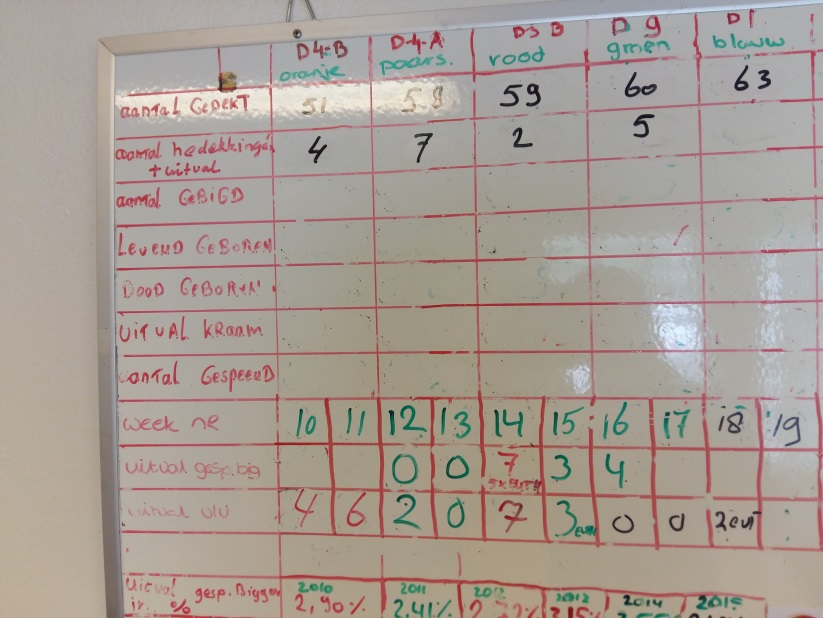 D4-B D-4-A D3 B D 9 D1
oranje paars. rood groen blauw
aantal GeDekT 51 58 59 60 63
aantal hedekkingen 4 7 2 5
+ uitval
aantal GeBiGD
LeVenD GeBoReN
DooD GeBoReN
UiTVAL KRaam
aantal GespeenD
week nr 10 11 12 13 14 15 16 17 18 19
uitval gesp.big 0 0 7 3 4
uitval 4 6 2 0 7 3 0 0 2
Uitval gesp. Biggen 2010 2011 2012 2014 2015
in % 2,90% 2,41%